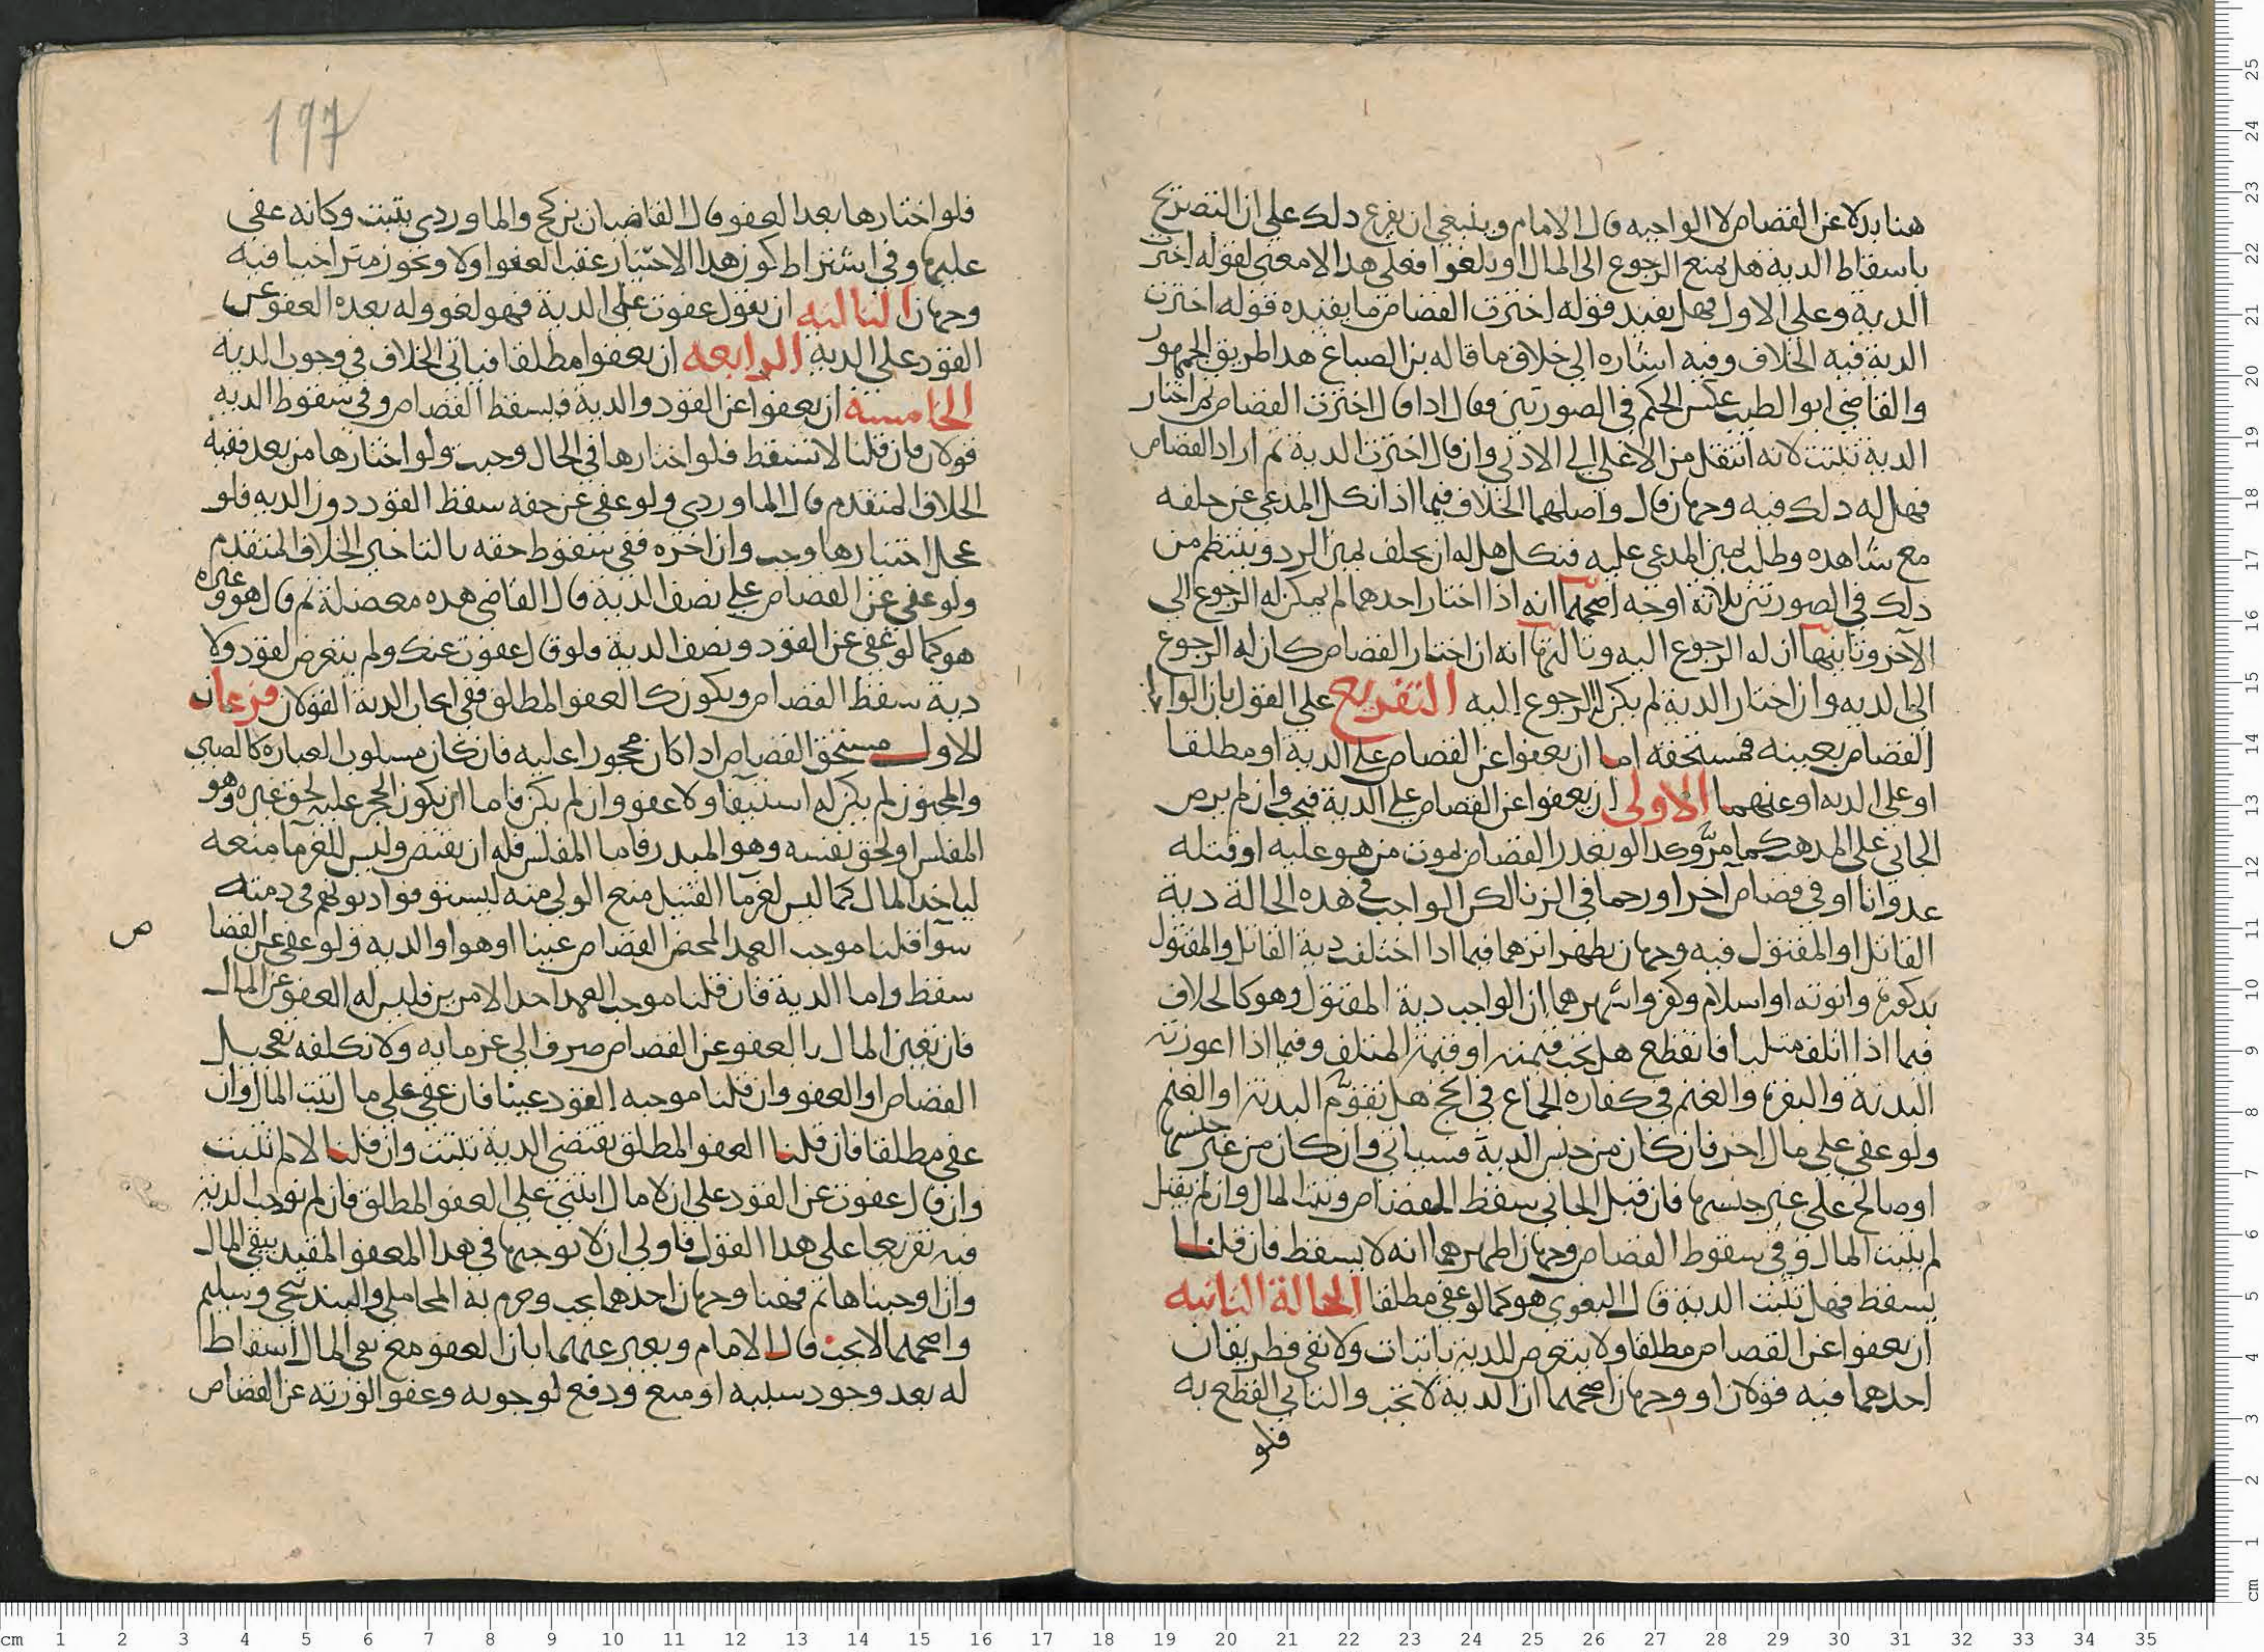 هنا بدلا عن القصاص لا الواجبه قال الامام وينبغي ان يفرع ذلك على ان التصريح
باسقاط الدية هل يمنع الرجوع الى المال او يلغوا فعلى هذا لا معنى لقوله اخترت
الدية وعلى الاول فهل يفيد قوله اخترت القصاص ما يفيده قوله اخترت
الدية فيه الخلاف وفيه اشاره الى خلاف ما قاله بن الصباغ هذا طريق الجمهور
والقاضي ابو الطيب عكس الحكم في الصورتين فقال اذا قال اخترت القصاص ثم اختار
الدية تثبت لانه انتقل من الاعلى الى الادنى وان قال اخترت الدية ثم اراد القصاص
فهل له ذلك فيه وجهان قال واصلهما الخلاف فيما اذا نكل المدعي عن حلفه
مع شاهده وطلب يمين المدعى عليه فنكل هل له ان يحلف يمين الرد وينتظم من
ذلك في الصورتين ثلاثة اوجه اصحها انه اذا اختار احدهما لم يمكن له الرجوع الى
الآخر وثانيها ان له الرجوع اليه وثالثها انه ان اختار القصاص كان له الرجوع
الى الديه وان اختار الدية لم يكن له الرجوع اليه التفريع على القول بان الواجب
القصاص بعينه فمستحقه اما ان يعفوا عن القصاص على الدية او مطلقا
او على الديه او عنهما الاولى ان يعفوا عن القصاص على الدية فتجب وان لم يرض
الجاني على المذهب كما مرّ وكذا لو تعذر القصاص بموت من هو عليه او قتله
عدوانا او في قصاص آخر او رجما في الزنا لكن الواجب في هذه الحالة دية
القاتل او المقتول فيه وجهان يظهر اثرهما فيما اذا اختلفت دية القاتل والمقتول
بذكورة وانوثه او اسلام وكفر واشهرهما ان الواجب دية المقتول وهو كالخلاف
فيما اذا اتلف مثليا فانقطع هل تجب قيمته او قيمة المتلف وفيما اذا اعوزته
البدنة والبقرة والغنم في كفاره الجماع في الحج هل تقوّم البدنة او الغنم
ولو عفى على مال اخر فان كان من جنس الدية فسياتي وان كان من غير جنسها
او صالح على غير جنسها فان قبل الجاني سقط القصاص وثبت المال وان لم يقبل
لم يثبت المال وفي سقوط القصاص وجهان اظهرهما انه لا يسقط فان قلنا
يسقط فهل تثبت الدية قال البغوي هو كما لو عفى مطلقا الحالة الثانيه
ان يعفوا عن القصاص مطلقا ولا يتعرض للدية باثبات ولا نفي فطريقان
احدهما فيه قولان او وجهان اصحهما ان الدية لا تجب والثاني القطع به
فلو
197
فلو اختارها بعد العفو قال القاضيان بن كج والماوردي يثبت وكانه عفى
عليها وفي اشتراط كون هذا الاختيار عقب العفو اولا ويجوز متراخيا فيه
وجهان الثالثه ان يقول عفوت على الدية فهو لغو وله بعده العفو عن
القود على الدية الرابعه ان يعفوا مطلقا فياتي الخلاف في وجوب الدية
الخامسة ان يعفوا عن القود والدية فيسقط القصاص وفي سقوط الديه
قولان فان قلنا لا تسقط فلو اختارها في الحال وجبت ولو اختارها من بعد ففيه
الخلاف المتقدم قال الماوردي ولو عفى عن حقه سقط القود دون الديه فلو
عجل اختيارها وجب وان اخره ففي سقوط حقه بالتاخير الخلاف المتقدم
ولو عفى عن القصاص على نصف الدية قال القاضي هذه معضلة ثم قال هو وغيره
هو كما لو عفى عن القود ونصف الدية فلو قال عفوت عنك ولم يتعرض لقود ولا
دية سقط القصاص ويكون كالعفو المطلق ففي ايجاب الدية القولان فرعان
الاول مستحق القصاص اذا كان محجورا عليه فان كان مسلوب العباره كالصبي
والمجنون لم يكن له استيفا ولا عفو وان لم يكن فاما ان يكون الحجر عليه لحق غيره وهو
المفلس او لحق نفسه وهو المبذر فاما المفلس فله ان يقتص وليس للغرما منعه
لياخذ المال كما ليس لغرما القتيل منع الولي منه ليستوفوا ديونهم في ذمته
سوآ قلنا موجب العمد المحض القصاص عينا او هو او الديه ولو عفى عن القصا
ص
سقط واما الدية فان قلنا موجب العمد احد الامرين فليس له العفو عن المال
فان تعين المال بالعفو عن القصاص صرف الى غرمايه ولا نكلفه تعجيل
القصاص او العفو وان قلنا موجبه القود عينا فان عفى على مال ثبت المال وان
عفى مطلقا فان قلنا العفو المطلق يقتضي الدية تثبت وان قلنا لا لم تثبت
وان قال عفوت عن القود على ان لا مال ابتنى على العفو المطلق فان لم نوجب الدية
فيه تفريعا على هذا القول فاولى ان لا نوجبها في هذا العفو المقيد بنفي المال
وان اوجبناها ثم فههنا وجهان احدهما يجب وجزم به المحاملي والبندنيجي وسليم
واصحهما لا يجب قال الامام ويعبر عنهما بان العفو مع نفي المال اسقاط
له بعد وجود سببه او منع ودفع لوجوبه وعفو الورثه عن القصاص